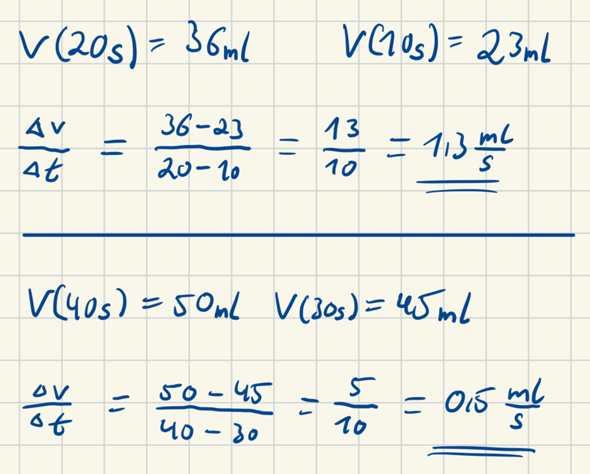 V(20s) = 36ml V(10s) = 23ml
Δv/Δt = 36-23/20-10 = 13/10 = 1,3 ml/s
V(40s) = 50ml V(30s) = 45ml
ΔV/Δt = 50-45/40-30 = 5/10 = 0,5 ml/s